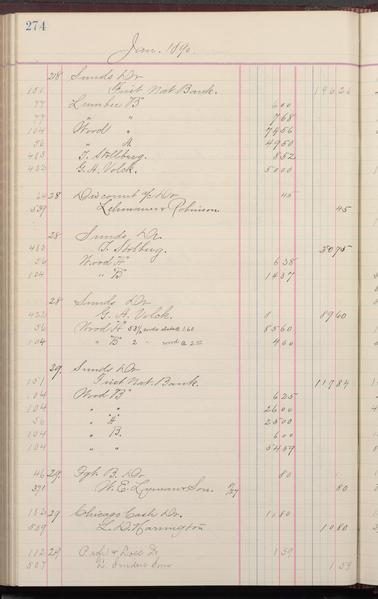 274
Jan. 1890
28 Sunds Dr
151 First Nat Bank. 19626
77 Lumber B 600
77 " " 768
104 Wood " 7456
56 " A 4950
483 T. Stolburg. 852
422 G. A. Volck. 5000
64 28 Discount % Dr 45
539 Lehmann & Robinson 45
28 Sunds Dr
483 T. Stolburg. 3075
56 Wood A 638
104 " B 1437
28 Sunds Dr
422 G. A. Volck 8960
56 Wood A 8560
104 " B 2 400
29. Sunds Dr
151 First Nat. Bank. 11784
104 Wood B 625
104 " " 2600
56 " A 2500
104 " B. 600
104 " " 5459
46 29. Fgt. B. Dr 80
371 W. E. Lyman & Son. 80
182 29 Chicago Cash Dr. 1080
509 L. D. Harrington 1080
112 29 Dr 159
507 159